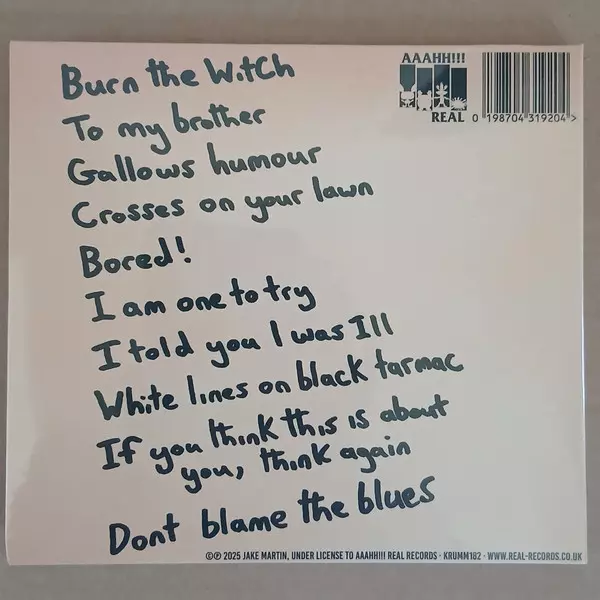 Burn the Witch
To my brother
Gallows humour
Crosses on your lawn
Bored!
I am one to try
I told you I was Ill
White lines on black tarmac
If you think this is about
you, think again
Dont blame the blues
AAAHH!!!
REAL
0 198704 319204 >
©℗ 2025 JAKE MARTIN, UNDER LICENSE TO AAAHH!!! REAL RECORDS · KRUMM182 · WWW.REAL-RECORDS.CO.UK